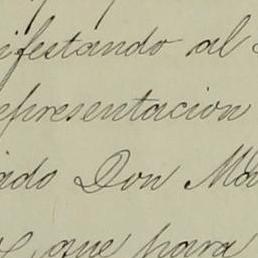 ifestando al
epresentacion
ado Don Ma
que para